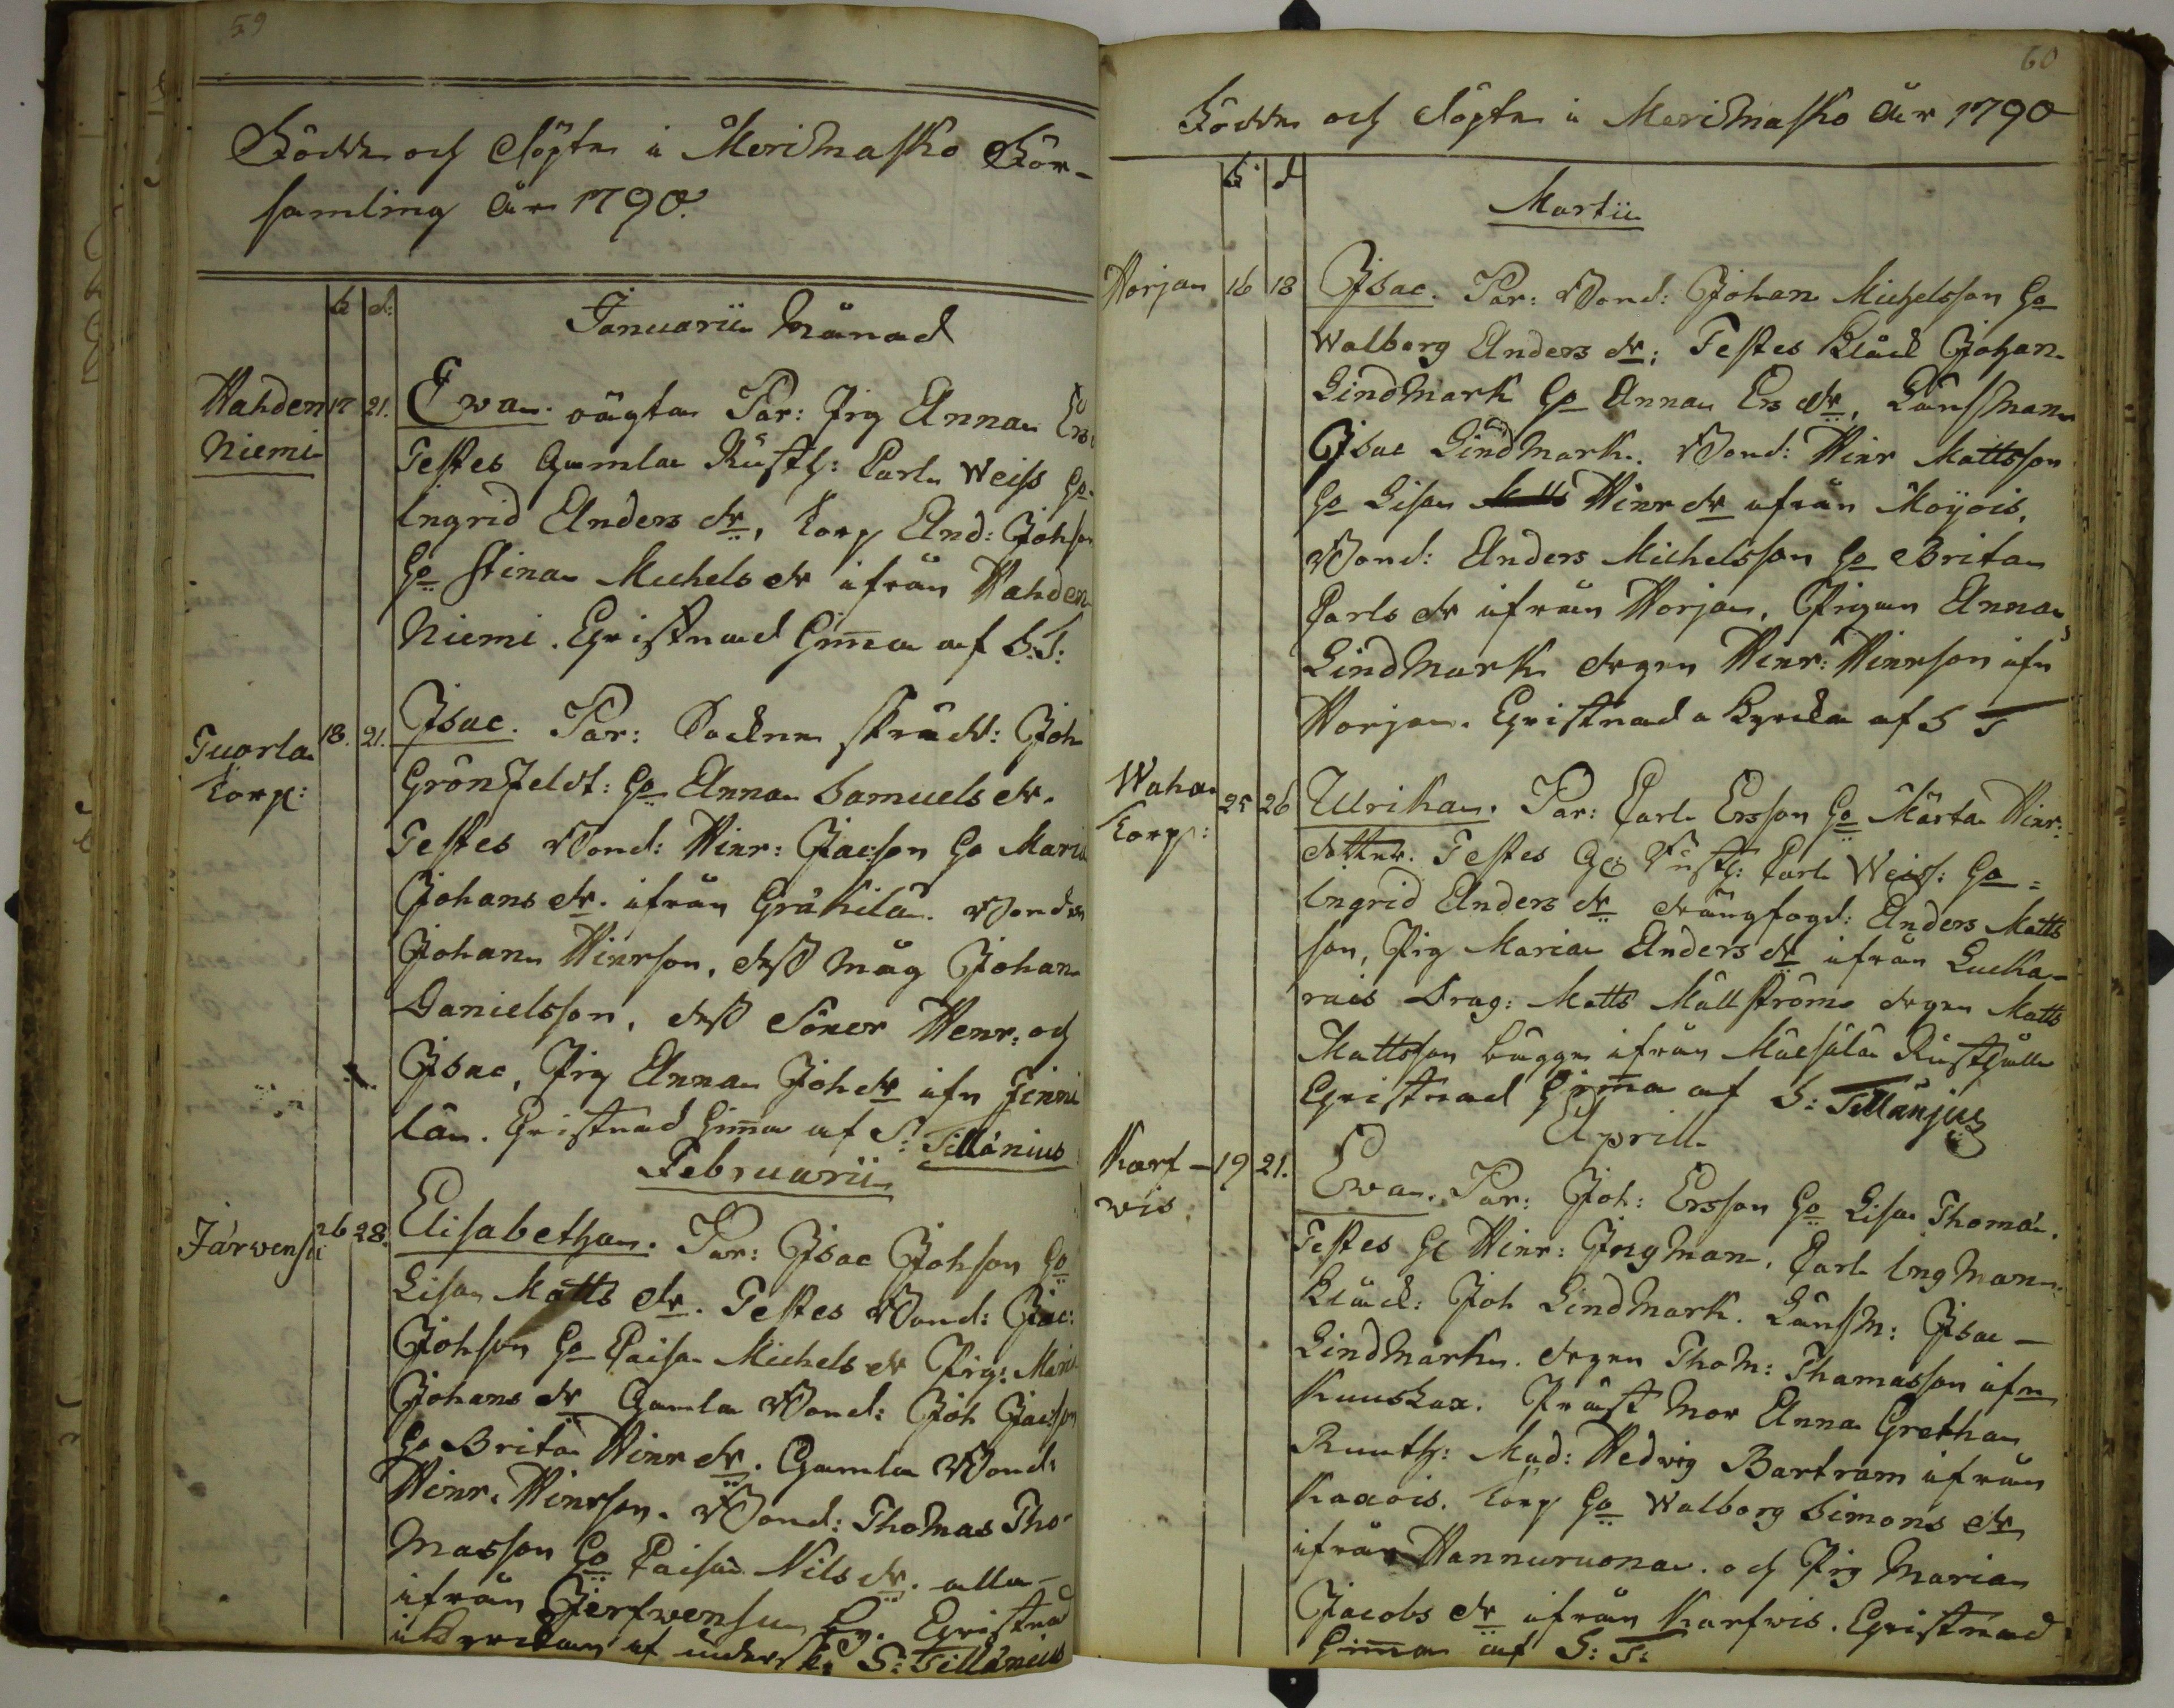 59
Födde och Döpte i Merimasko För-
samling År 1790.
Januarii Månad
f. d.
Wahden 17 21. Ewa. oägta Par: Pig Anna Ers
Niemi Testes Gamla Rusth: Carl Weiss Ho
Ingrid Anders dr, Torp And: Johson
Ho Stina Michels dr ifrån Wahden
Niemi. Christnad Hemma af S:T:
Tuorla 18. 21. Isac. Par: Sockne skrädd: Joh
Torp: Grönfeldt: Ho Anna Samuels dr.
Testes Bond: Hinr: Jacson Ho Maria
Johans dr. ifrån Gräkilä. Bonden
Johan Hinrson, dess måg Johan
Danielsson, dess Söner Henr: och
Isac, Pig Anna Joh dr ifn Finni
lä. Christnad Hemma af S: Tillänius
Februarii
Järvensu 26 28. Elisabetha. Par: Isac Johson Ho
Lisa Matts dr. Testes Bond: Jac:
Johson Ho Caisa Michels dr Pig: Maria
Johans dr Gamla Bond: Joh Jacson
Ho Brita Hinr dr. Gamla Bond:
Hinr. Hinrson. Bond: Thomas Tho-
masson Ho Caisa Nils dr. alla
ifrån Jerfwensu by. Christnad
i Kyrckan af undersk. S: Tillänius
60
Födde och Döpte i Merimasko År 1790
f. d
Martii
Horjan 16 18 Isac. Par: Bond: Johan Michelsson Ho
Walborg Anders dr: Testes Klåck Johan
Lindmark Ho Anna Ers dr, Länsman
Isac Lindmark. Bond: Hinr Mattsson
Ho Lisa Hinr dr ifrån Moÿois,
Bond: Anders Michelsson Ho Brita
Carls dr ifrån Horjan, Pigan Anna
Lindmark drgen Henr: Hinrson ifn
Horjan. Christnad i Kyrcka af S T
Waha 25 26 Ulrika. Par: Carl Ersson Ho Märta Hinr:
Torp: dotter. Testes Gl Rusth: Carl Weiss: Ho
Ingrid Anders dr drängfogd: Anders Matts
son, Pig Maria Anders dr ifrån Lucka-
rais Drag: Matts Mällström drgen Matts
Mattsson bägge ifrån Mälsälä Rusthåll
Christnad Hemma af S: Tillänjus
Aprill
Karf- 19 21. Ewa. Par: Joh: Ersson Ho Lisa Thomä.
wis. Testes Gl Hinr: Ingman, Carl Ingman.
Klåck: Joh Lindmark. Länsm: Isac
Lindmark. drgen Thom: Thomasson ifn
Kuuskax. Präst mor Anna Gretha
Ruuth: Mad: Hedvig Bartram ifrån
Kaxois. Torp Ho Walborg Simons dr
ifrån Hannuruona. och Pig Maria
Jacobs dr ifrån Karfwis. Christnad
Hemma af S: T: